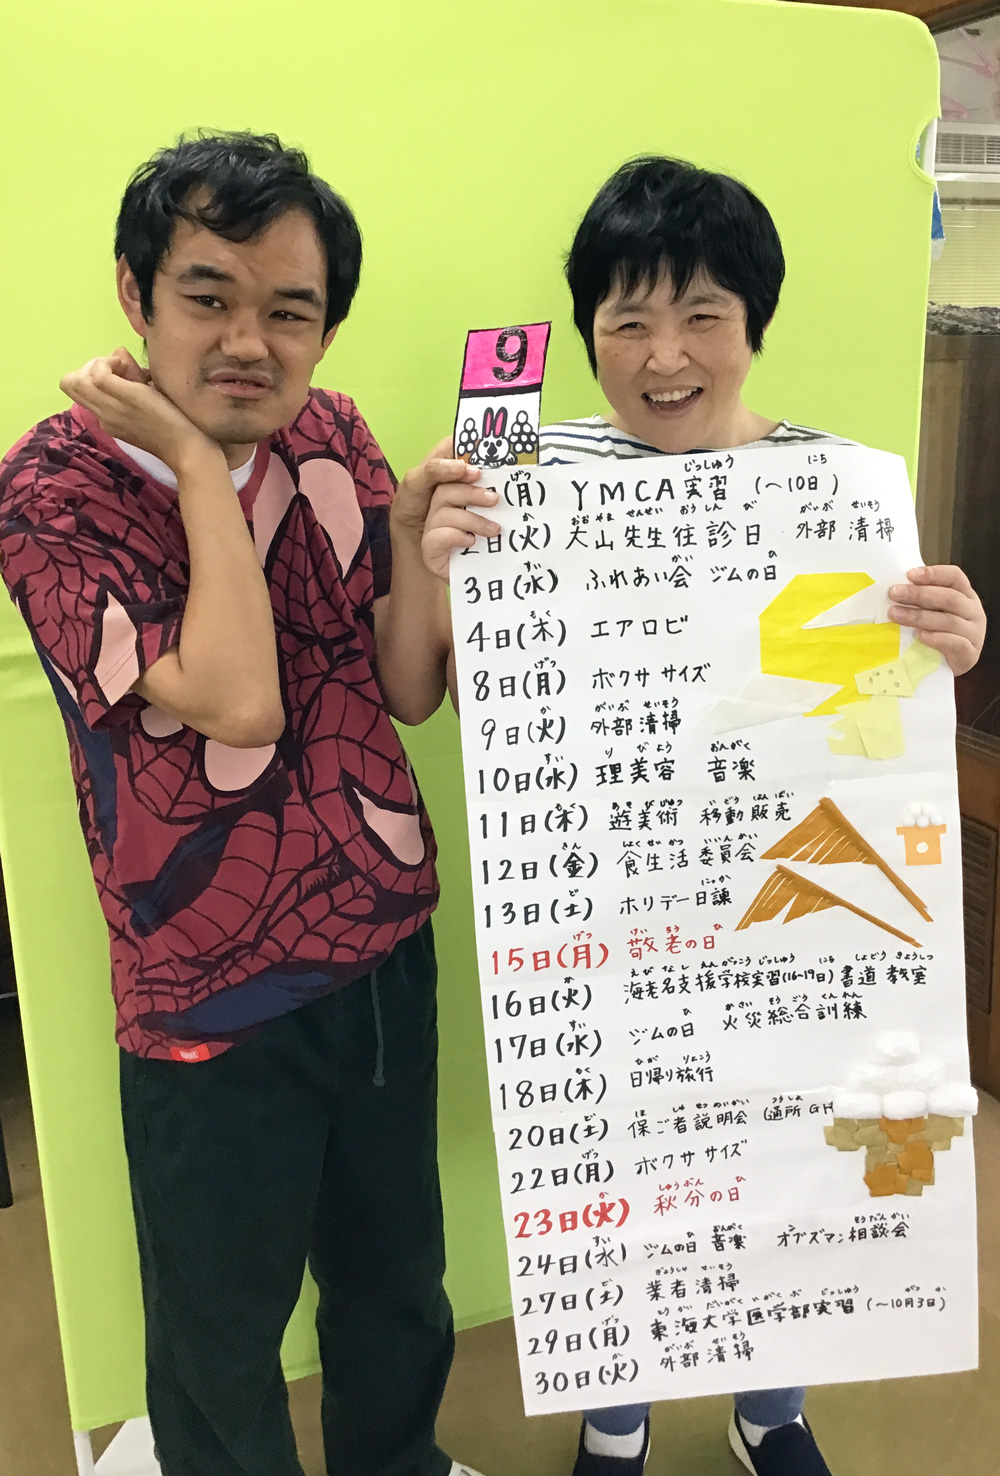 9
日(月) YMCA実習 (〜10日)
2日(火) 大山先生往診日 外部清掃
3日(水) ふれあい会 ジムの日
4日(木) エアロビ
8日(月) ボクササイズ
9日(火) 外部清掃
10日(水) 理美容 音楽
11日(木) 遊美術 移動販売
12日(金) 食生活委員会
13日(土) ホリデー日課
15日(月) 敬老の日
16日(火) 海老名支援学校実習(16〜19日) 書道教室
17日(水) ジムの日 火災総合訓練
18日(木) 日帰り旅行
20日(土) 保ご者説明会 (通所GH
22日(月) ボクササイズ
23日(火) 秋分の日
24日(水) ジムの日 音楽 オンブズマン相談会
27日(土) 業者清掃
29日(月) 東海大学医学部実習 (〜10月3日)
30日(火) 外部清掃
MARVEL